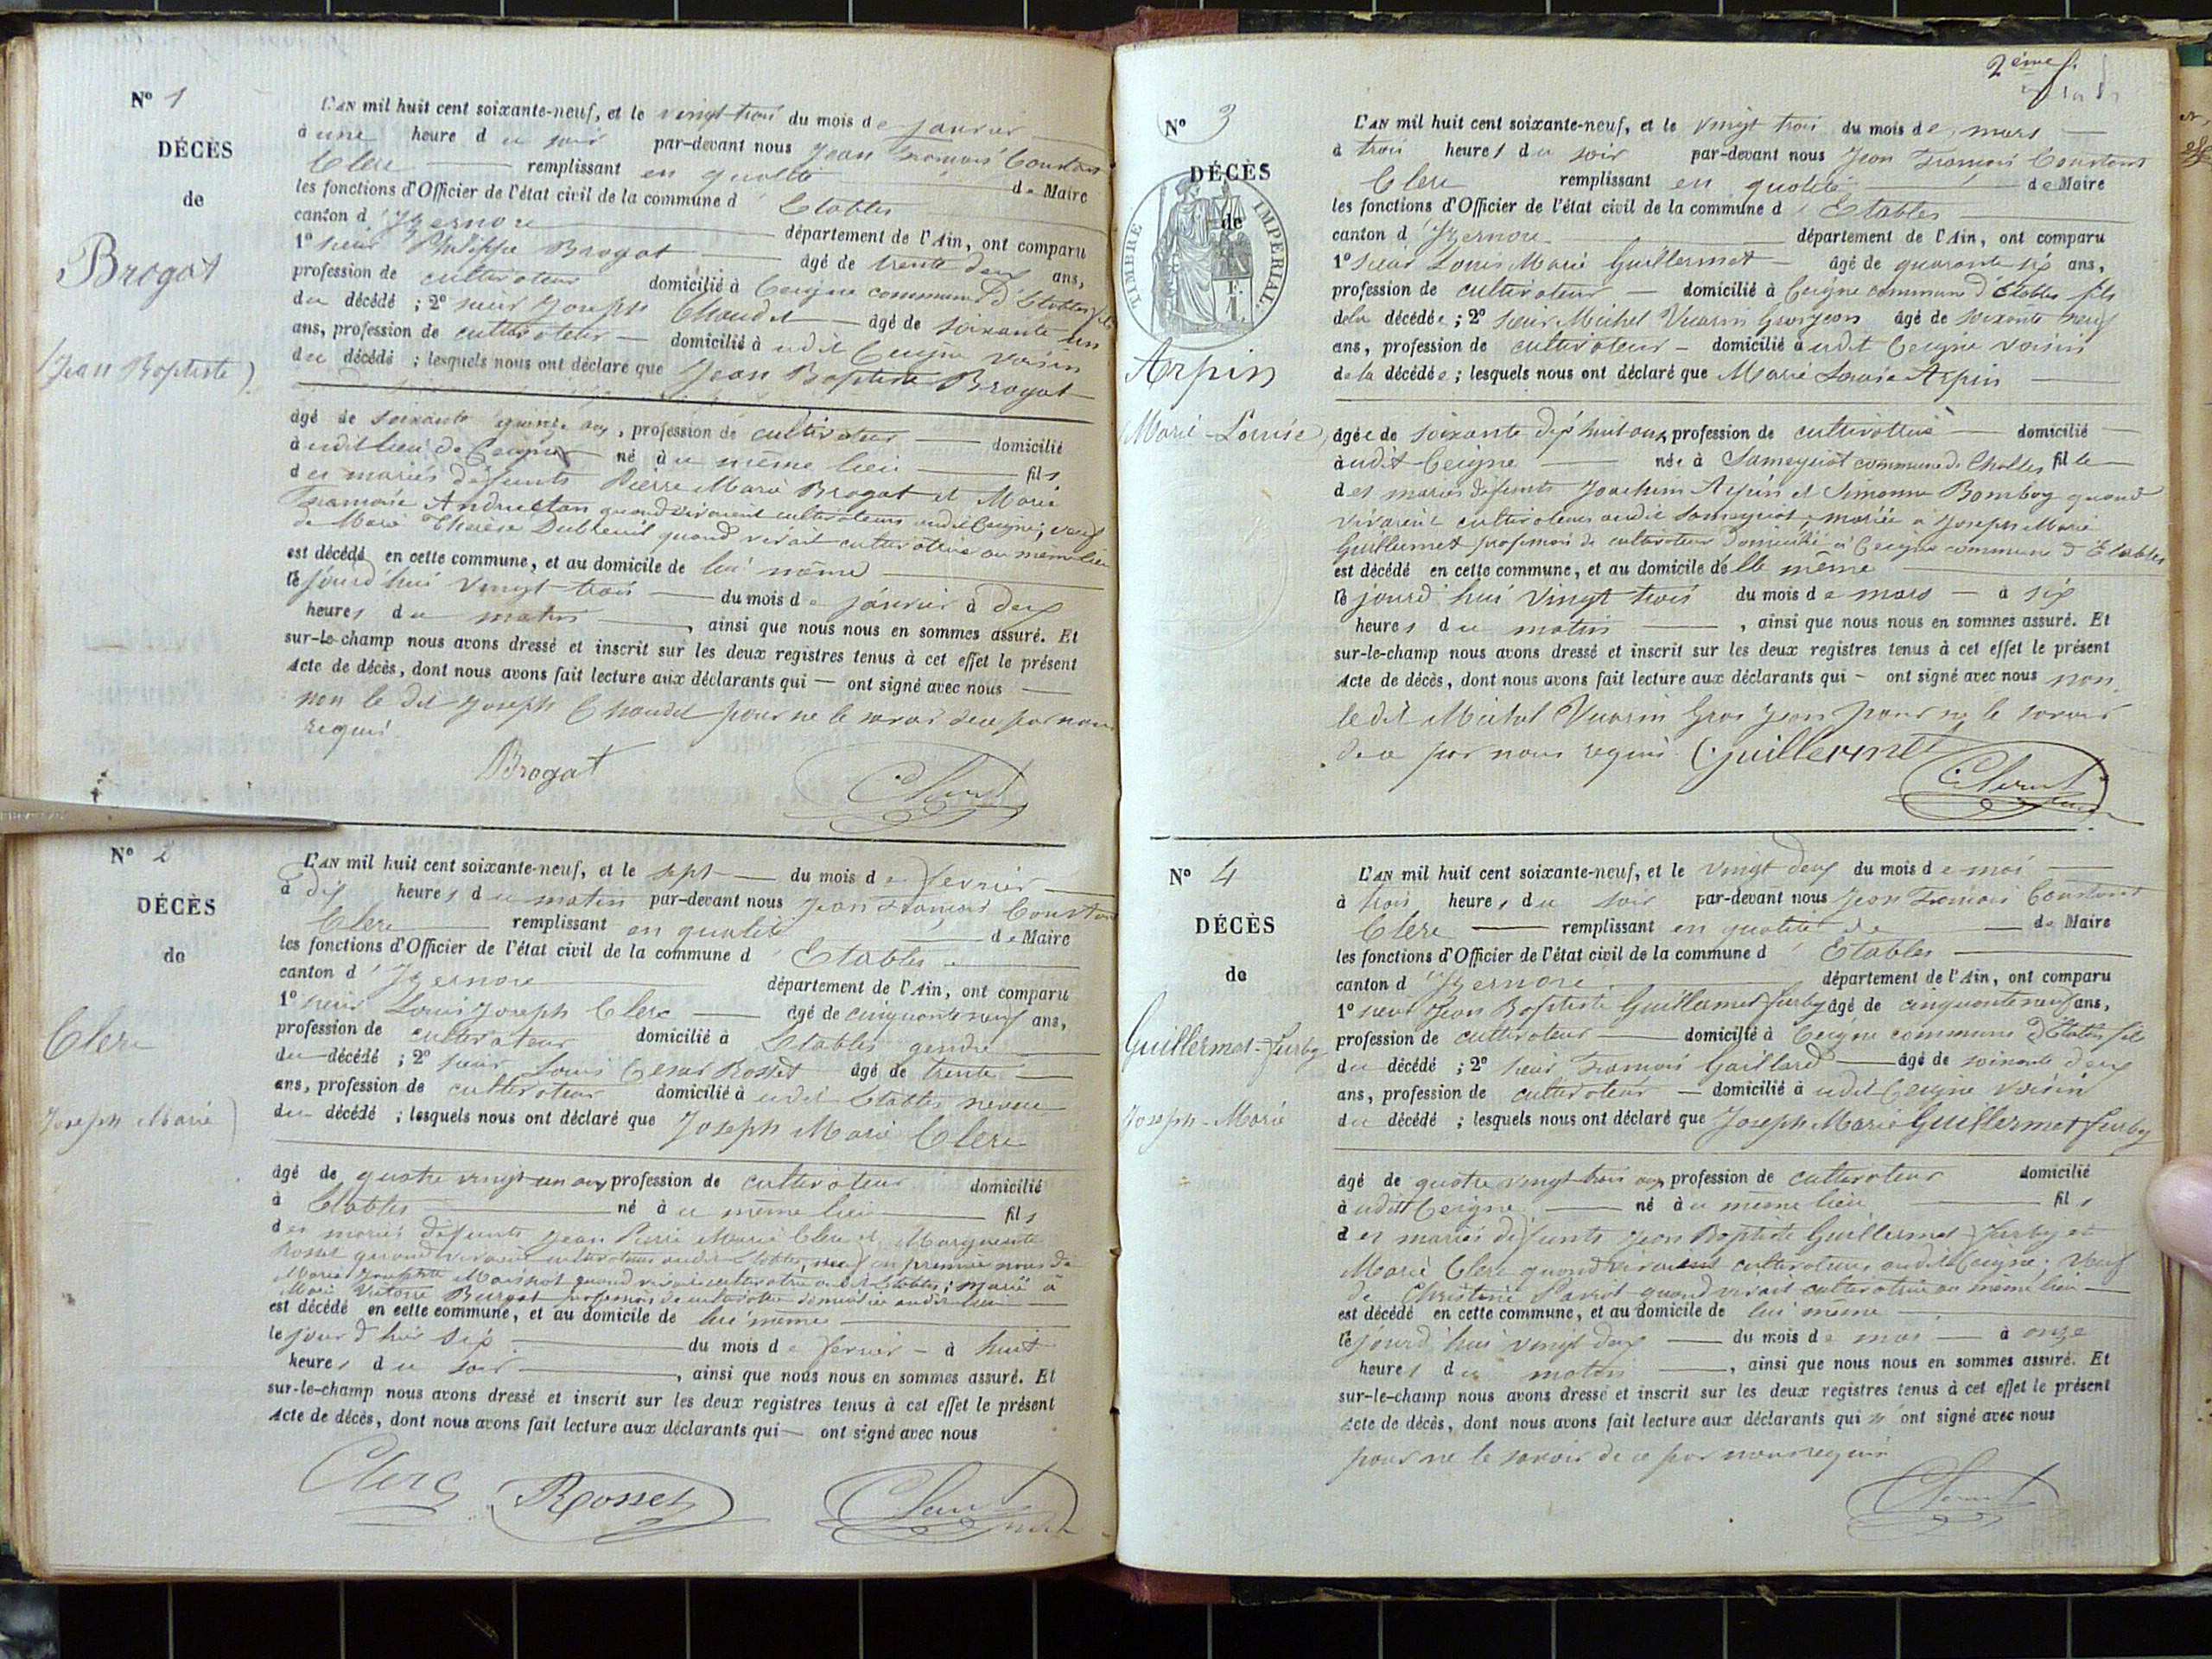 N° 1
DÉCÈS
de
Brogat
(Jean Baptiste)
L'AN mil huit cent soixante-neuf, et le vingt trois du mois de janvier
à une heure du soir par-devant nous Jean François Constant
Clerc remplissant en qualité de Maire
les fonctions d'Officier de l'état civil de la commune d' Etables
canton d' Izernore département de l'Ain, ont comparu
1° sieur Philippe Brogat âgé de trente deux ans,
profession de cultivateur domicilié à Ceigne commune d'Etables fils
du décédé ; 2° sieur Joseph Chaudet âgé de soixante un
ans, profession de cultivateur domicilié à udit Ceigne voisin
du décédé ; lesquels nous ont déclaré que Jean Baptiste Brogat
âgé de soixante quinze ans, profession de cultivateur domicilié
à udit lieu de Ceigne né à u même lieu fils
des mariés défunts Pierre Marie Brogat et Marie
Françoise quand vivaient cultivateurs audit Ceigne; veuf
de Marie Thérèse Dubreuil quand vivait cultivatrice au même lieu
est décédé en cette commune, et au domicile de lui même
le jourd'hui vingt trois du mois de janvier à deux
heures du matin, ainsi que nous nous en sommes assuré. Et
sur-le-champ nous avons dressé et inscrit sur les deux registres tenus à cet effet le présent
Acte de décès, dont nous avons fait lecture aux déclarants qui ont signé avec nous
non le dit Joseph Chaudet pour ne le savoir de ce par nous
requis.
Brogat
N° 2
DÉCÈS
de
Clerc
Joseph Marie)
L'AN mil huit cent soixante-neuf, et le sept du mois de fevrier
à dix heures du matin par-devant nous Jean François Constant
Clerc remplissant en qualité de Maire
les fonctions d'Officier de l'état civil de la commune d' Etables
canton d' Izernore département de l'Ain, ont comparu
1° sieur Louis Joseph Clerc âgé de cinquante neuf ans,
profession de cultivateur domicilié à Etables gendre
du décédé ; 2° sieur Louis Cesar Rosset âgé de trente
ans, profession de cultivateur domicilié à udit Etables neveu
du décédé ; lesquels nous ont déclaré que Joseph Marie Clerc
âgé de quatre vingt un ans profession de cultivateur domicilié
à Etables né à u même lieu fils
des mariés défunts Jean Pierre Marie Clerc et Marguerite
Rosset quand vivaient cultivateurs audit Etables, veuf en premier noces de
Marie quand vivait cultivatrice audit Etables; marié à
Marie Victoire profession de cultivatrice domiciliée audit lieu
est décédé en cette commune, et au domicile de lui même
le jour d'hui six du mois de fevrier à huit
heures du soir, ainsi que nous nous en sommes assuré. Et
sur-le-champ nous avons dressé et inscrit sur les deux registres tenus à cet effet le présent
Acte de décès, dont nous avons fait lecture aux déclarants qui ont signé avec nous
Clerc Rosset
2ème f.
N° 3
DÉCÈS
de
TIMBRE IMPERIAL.
Arpin
Marie-Louise
L'AN mil huit cent soixante-neuf, et le vingt trois du mois de mars
à trois heures du soir par-devant nous Jean François Constant
Clerc remplissant en qualité de Maire
les fonctions d'Officier de l'état civil de la commune d' Etables
canton d' Izernore département de l'Ain, ont comparu
1° sieur Louis Marie Guillermet âgé de quarante six ans,
profession de cultivateur domicilié à Ceigne commune d'Etables fils
de la décédée ; 2° sieur Michel Vuarin Grosjean âgé de soixante neuf
ans, profession de cultivateur domicilié à udit Ceigne voisin
de la décédée ; lesquels nous ont déclaré que Marie Louise Arpin
âgée de soixante dix huit ans profession de cultivatrice domicilié
à udit Ceigne née à Lameyriat commune de Challes fille
des mariés défunts Joachim Arpin et Simonne quand
vivaient cultivateurs audit Lameyriat, mariée à Joseph Marie
Guillermet profession de cultivateur domicilié à Ceigne commune d'Etables
est décédé en cette commune, et au domicile d'elle même
le jourd'hui vingt trois du mois de mars à six
heures du matin, ainsi que nous nous en sommes assuré. Et
sur-le-champ nous avons dressé et inscrit sur les deux registres tenus à cet effet le présent
Acte de décès, dont nous avons fait lecture aux déclarants qui ont signé avec nous non
ledit Michel Vuarin Gros Jean pour ne le savoir
de ce par nous requis. Guillermet
N° 4
DÉCÈS
de
Guillermet-Furby
Joseph-Marie
L'AN mil huit cent soixante-neuf, et le vingt deux du mois de mai
à trois heures du soir par-devant nous Jean François Constant
Clerc remplissant en qualité de de Maire
les fonctions d'Officier de l'état civil de la commune d' Etables
canton d' Izernore département de l'Ain, ont comparu
1° sieur Jean Baptiste Guillermet Furby âgé de cinquante neuf ans,
profession de cultivateur domicilié à Ceigne commune d'Etables fils
du décédé ; 2° sieur François Gaillard âgé de soixante deux
ans, profession de cultivateur domicilié à udit Ceigne voisin
du décédé ; lesquels nous ont déclaré que Joseph Marie Guillermet Furby
âgé de quatre vingt trois ans profession de cultivateur domicilié
à udit Ceigne né à u même lieu fils
des mariés défunts Jean Baptiste Guillermet Furby et
Marie Clerc quand vivaient cultivateurs audit Ceigne; veuf
de Christine quand vivait cultivatrice au même lieu
est décédé en cette commune, et au domicile de lui même
le jourd'hui vingt deux du mois de mai à onze
heures du matin, ainsi que nous nous en sommes assuré. Et
sur-le-champ nous avons dressé et inscrit sur les deux registres tenus à cet effet le présent
Acte de décès, dont nous avons fait lecture aux déclarants qui n' ont signé avec nous
pour ne le savoir de ce par nous requis